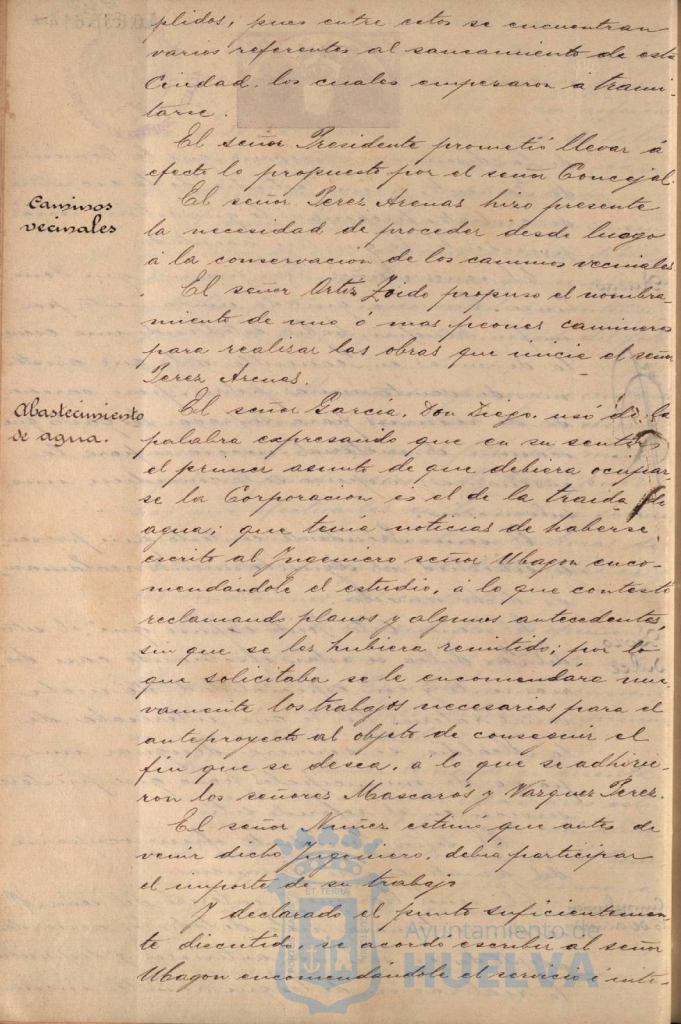 plidos, pues entre estos se encuentran
varios referentes al saneamiento de esta
Ciudad, los cuales empezaron á trami-
tarse.
El señor Presidente prometió llevar á
efecto lo propuesto por el señor Concejal.
Caminos
vecinales
El señor Perez Arenas hizo presente
la necesidad de proceder desde luego
á la conservación de los caminos vecinales.
El señor Ortiz Zoido propuso el nombra-
miento de uno ó mas peones camineros
para realizar las obras que inicie el señor
Perez Arenas.
Abastecimiento
de agua.
El señor García, Don Diego, usó de la
palabra expresando que en su sentir
el primer asunto de que debiera ocupar-
se la Corporacion es el de la traida de
agua; que tenia noticias de haberse
escrito al Ingeniero señor Ubagon enco-
mendándole el estudio, á lo que contestó
reclamando planos y algunos antecedentes,
sin que se les hubiera remitido; por lo
que solicitaba se le encomendára nue-
vamente los trabajos necesarios para el
anteproyecto al objeto de conseguir el
fin que se desea, á lo que se adhirie-
ron los señores Mascarós y Vazquez Perez.
El señor Nuñez estimó que antes de
venir dicho Ingeniero, debia participar
el importe de su trabajo
Y declarado el punto suficientemen-
te discutido, se acordó escribir al señor
Ubagon encomendándole el servicio é inte-
Ayuntamiento de
HUELVA